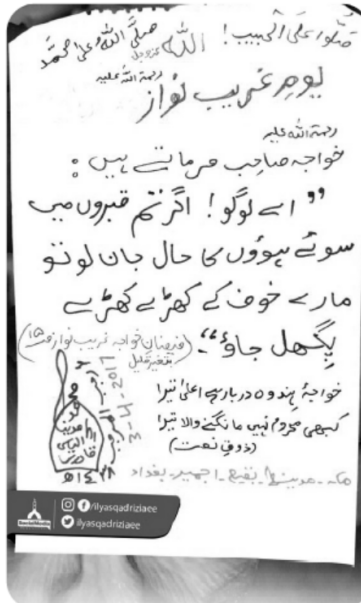 صَلُّوا عَلَى الْحَبِيب! صَلَّى اللهُ عَلٰى مُحَمَّد
اللہ عزوجل
رحمۃ اللہ علیہ
یومِ غریب نواز
رحمۃ اللہ علیہ
خواجہ صاحب فرماتے ہیں:
”اے لوگو! اگر تم قبروں میں
سوئے ہوؤں کا حال جان لو تو
مارے خوف کے کھڑے کھڑے
پگھل جاؤ“۔
(فیضانِ خواجہ غریب نواز ص ۱۵
بتغیر قلیل
خواجۂ ہند وہ دربار ہے اعلیٰ تیرا
کبھی محروم نہیں مانگنے والا تیرا
(ذوقِ نعت)
3-4-2017
محمد الیاس قادری
۱۴۳۸ھ
مکہ۔مدینہ۔بقیع۔اجمیر۔بغداد
/ilyasqadriziaee
ilyasqadriziaee